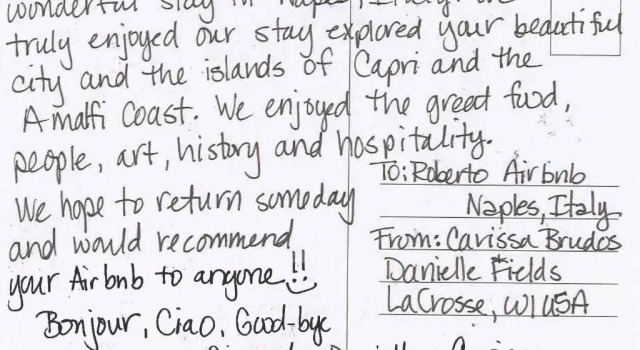 wonderful stay in Naples, Italy. We
truly enjoyed our stay explored your beautiful
city and the islands of Capri and the
Amalfi Coast. We enjoyed the great food,
people, art, history and hospitality.
We hope to return someday
and would recommend
your Airbnb to anyone!!
Bonjour, Ciao, Good-bye
To: Roberto Airbnb
Naples, Italy
From: Carissa Brudos
Danielle Fields
LaCrosse, WI USA